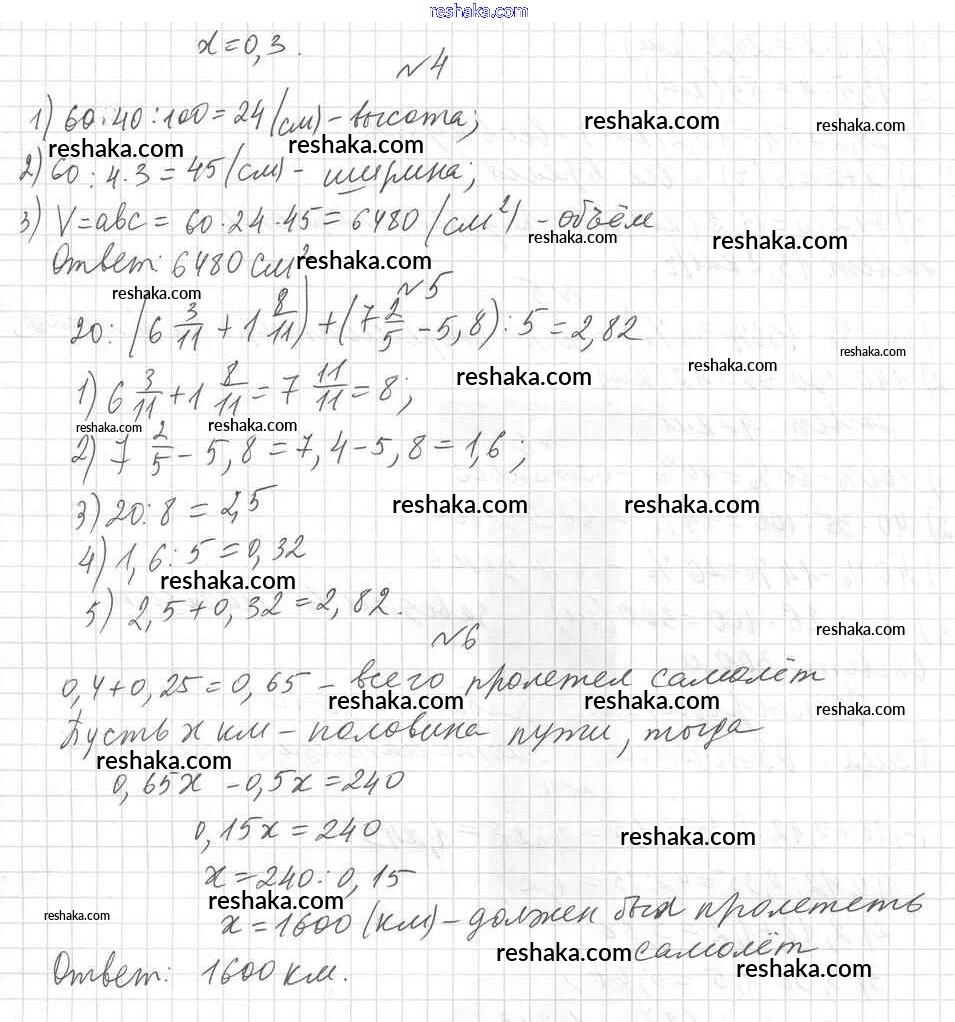 reshaka.com
x = 0,3.
№4
1) 60·40:100 = 24 (см) - высота;
reshaka.com reshaka.com
reshaka.com reshaka.com
2) 60:4·3 = 45 (см) - ширина;
3) V = abc = 60·24·45 = 6480 (см²) - объём
reshaka.com reshaka.com
Ответ: 6480 см²
reshaka.com
№5
reshaka.com
20:(6 3/11 + 1 8/11) + (7 2/5 - 5,8):5 = 2,82
reshaka.com reshaka.com
1) 6 3/11 + 1 8/11 = 7 11/11 = 8;
reshaka.com
reshaka.com reshaka.com
2) 7 2/5 - 5,8 = 7,4 - 5,8 = 1,6;
3) 20:8 = 2,5
reshaka.com reshaka.com
4) 1,6:5 = 0,32
reshaka.com
5) 2,5 + 0,32 = 2,82.
№6
reshaka.com
0,4 + 0,25 = 0,65 - всего пролетел самолёт
reshaka.com reshaka.com reshaka.com
Пусть x км - половина пути, тогда
reshaka.com
0,65x - 0,5x = 240
0,15x = 240
reshaka.com
x = 240:0,15
reshaka.com
x = 1600 (км) - должен был пролететь
reshaka.com
самолёт
reshaka.com reshaka.com
Ответ: 1600 км.